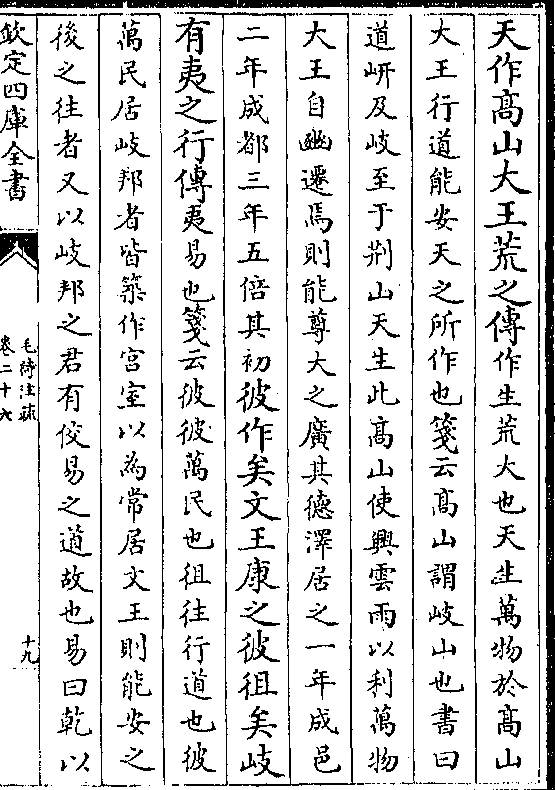 天作髙山大王荒之傳作生荒大也天生萬物於髙山
大王行道能安天之所作也箋云髙山謂岐山也書曰
道岍及岐至于荆山天生此髙山使興雲雨以利萬物
大王自豳遷焉則能尊大之廣其德澤居之一年成邑
二年成都三年五倍其初彼作矣文王康之彼徂矣岐
有夷之行傳夷易也箋云彼彼萬民也徂往行道也彼
萬民居岐邦者皆築作宫室以為常居文王則能安之
後之往者又以岐邦之君有佼易之道故也易曰乾以
欽定四庫全書
毛詩注疏
卷二十六
十九